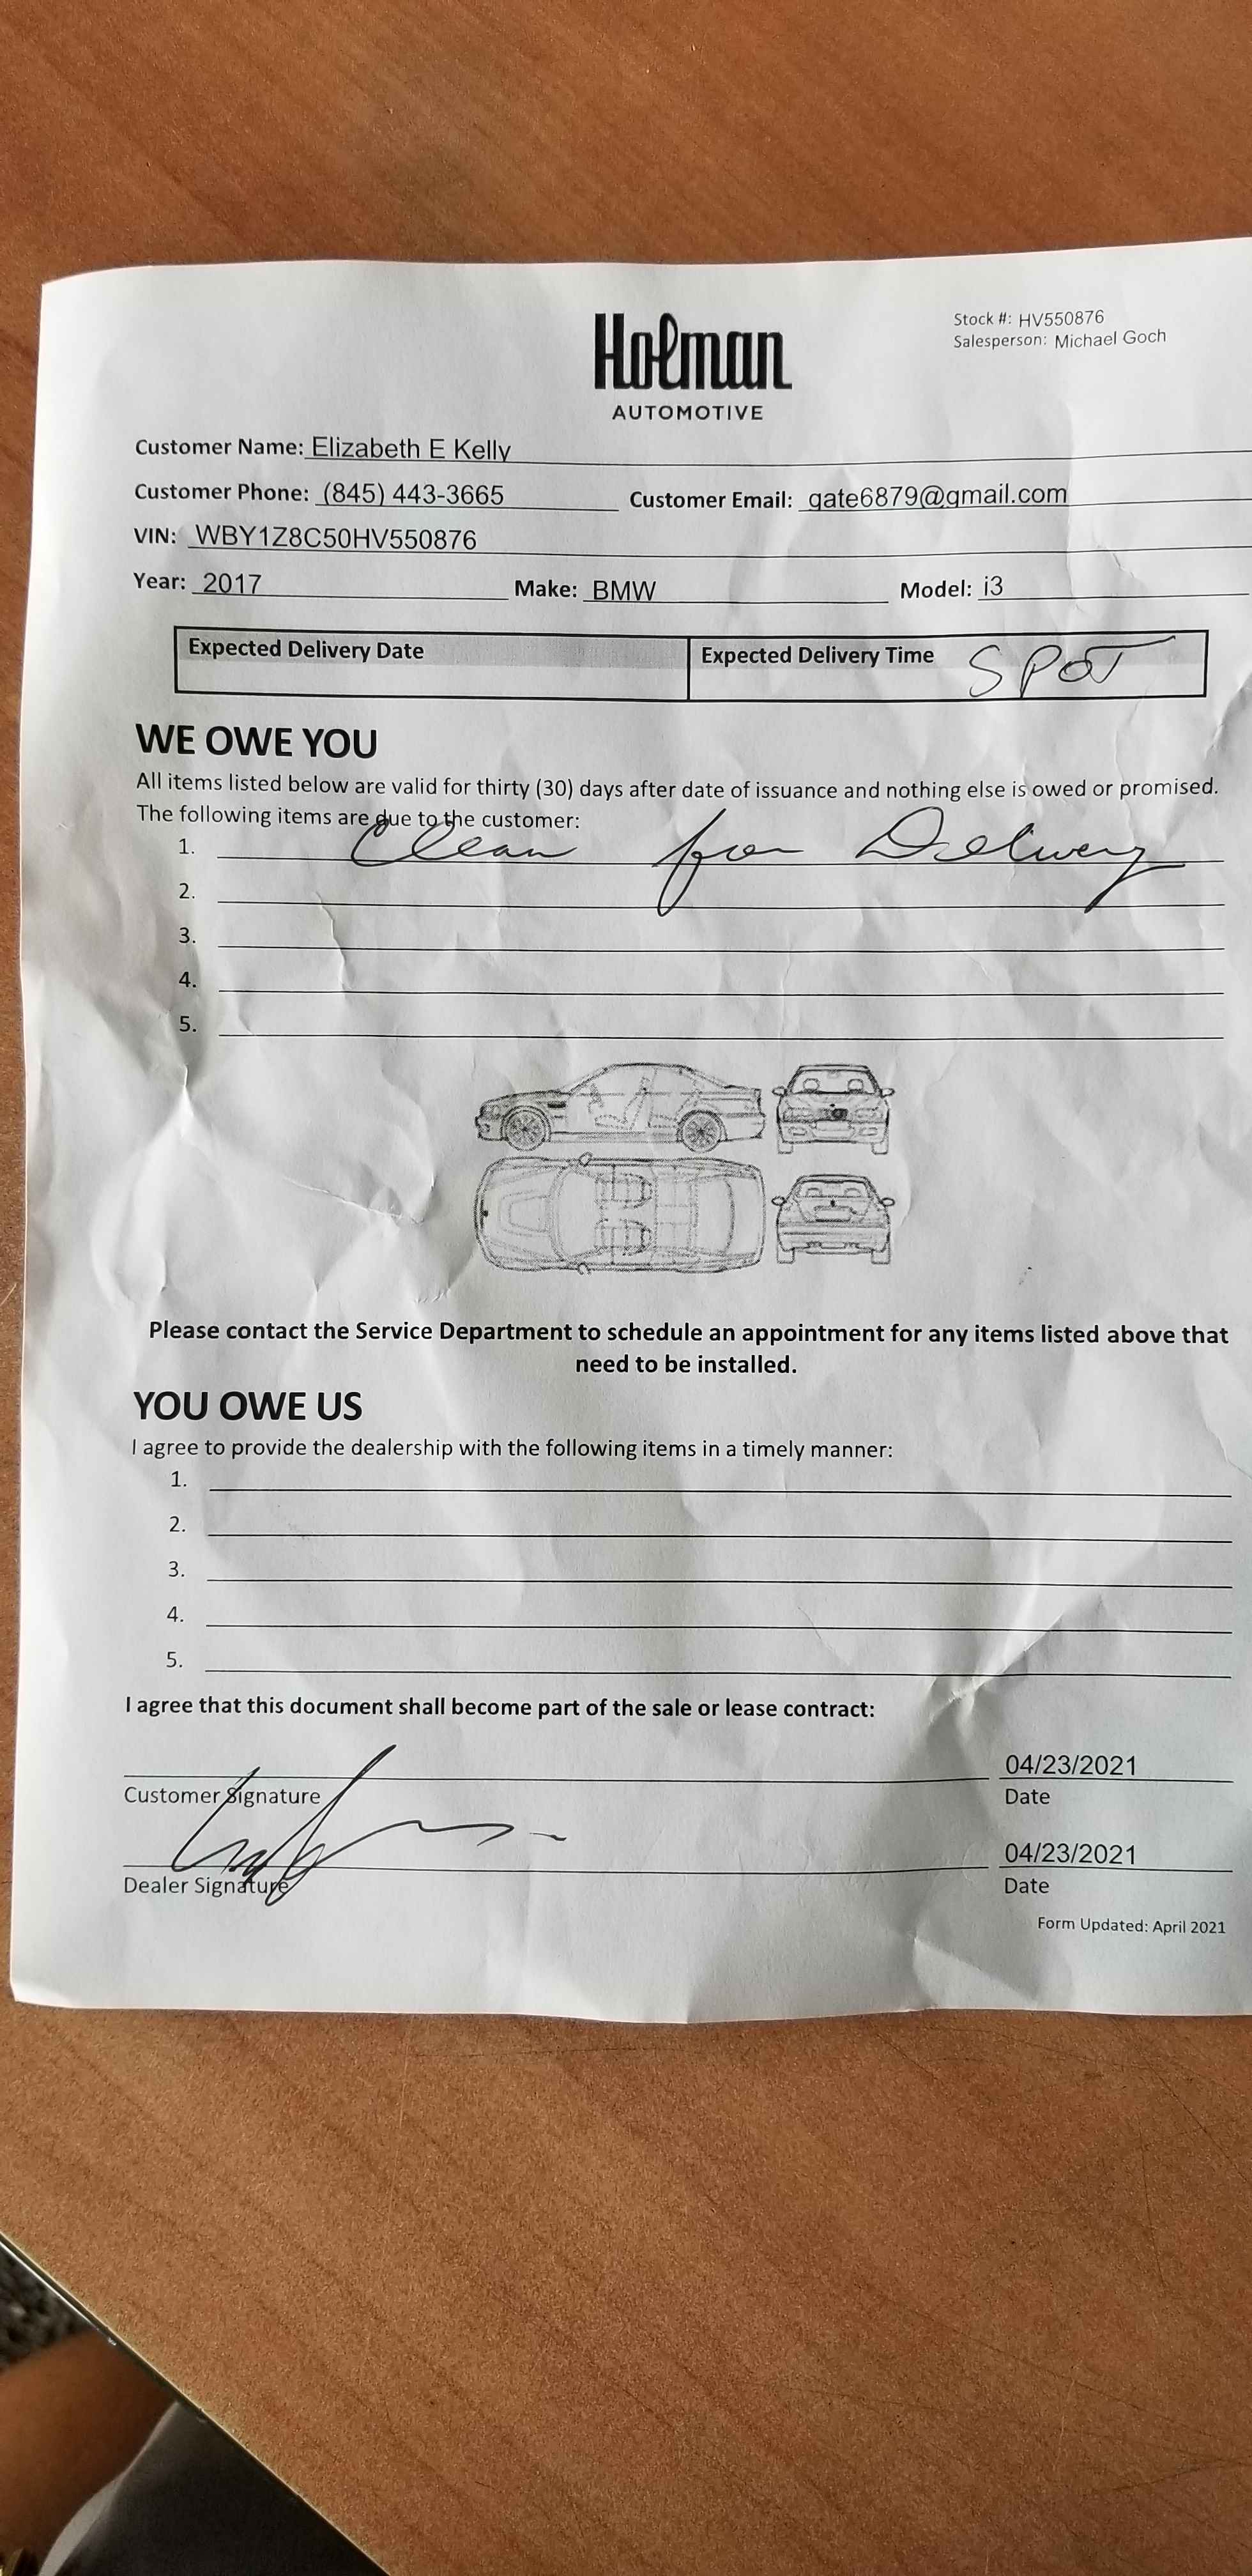 Holman
AUTOMOTIVE
Stock #: HV550876
Salesperson: Michael Goch
Customer Name: Elizabeth E Kelly
Customer Phone: (845) 443-3665 Customer Email: gate6879@gmail.com
VIN: WBY1Z8C50HV550876
Year: 2017 Make: BMW Model: i3
Expected Delivery Date Expected Delivery Time SPOT
WE OWE YOU
All items listed below are valid for thirty (30) days after date of issuance and nothing else is owed or promised.
The following items are due to the customer:
1. Clean for Delivery
2.
3.
4.
5.
Please contact the Service Department to schedule an appointment for any items listed above that
need to be installed.
YOU OWE US
I agree to provide the dealership with the following items in a timely manner:
1.
2.
3.
4.
5.
I agree that this document shall become part of the sale or lease contract:
04/23/2021
Customer Signature Date
04/23/2021
Dealer Signature Date
Form Updated: April 2021